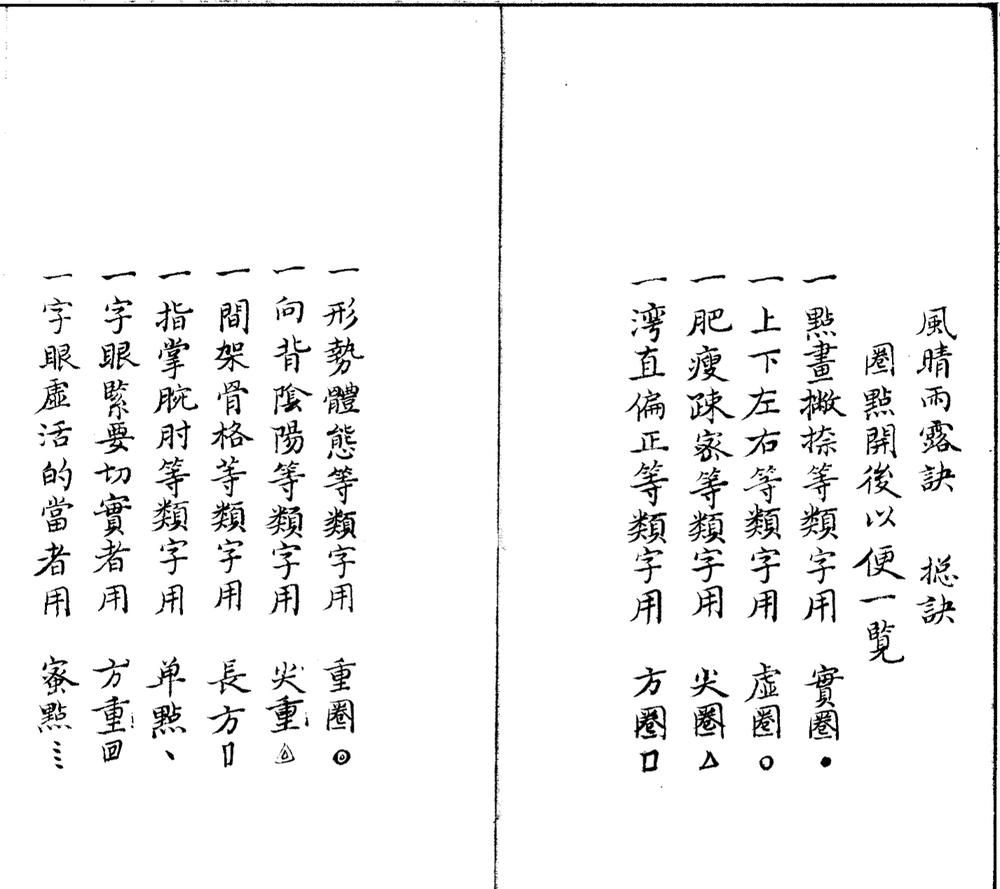 風晴雨露訣　摠訣
圈點開後以便一覽
一點畫撇捺等類字用　實圈●
一上下左右等類字用　虛圈○
一肥瘦疎密等類字用　尖圈△
一灣直偏正等類字用　方圈□
一形勢體態等類字用　重圈◎
一向背陰陽等類字用　尖重◬
一間架骨格等類字用　長方▯
一指掌腕肘等類字用　单點丶
一字眼緊要切實者用　方重回
一字眼虛活的當者用　蜜點⺀